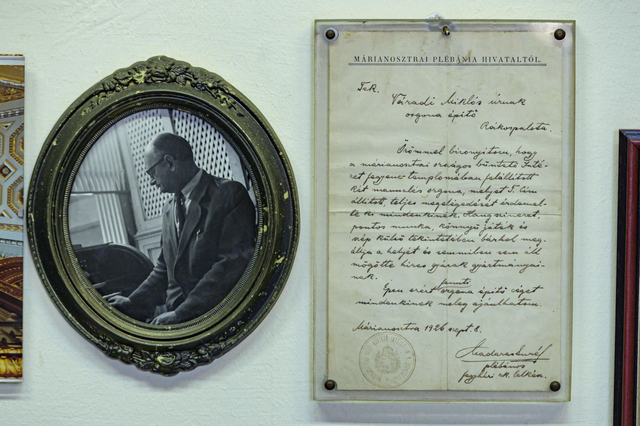 MÁRIANOSZTRAI PLÉBÁNIA HIVATALTÓL.
Tek.
Váradi Miklós úrnak
orgona építő
Rákospalota.
Örömmel bizonyítom, hogy
a márianosztrai országos büntető Inté-
zet fegyenc templomában felállított
két manuálos orgona, melyet T. Cím
állított, teljes megelégedését érdemel-
te ki mindenkinek. Hangszineret,
pontos munka, könnyű játék és
szép külső tekintetében bárhol meg-
állja a helyét és semmiben sem áll
mögötte híres gyárak gyártmányai-
nak.
Épen ezért fennti
orgona építő céget
mindenkinek meleg ajánlhatom.
Márianosztra 1926 szept. 8.
plébános